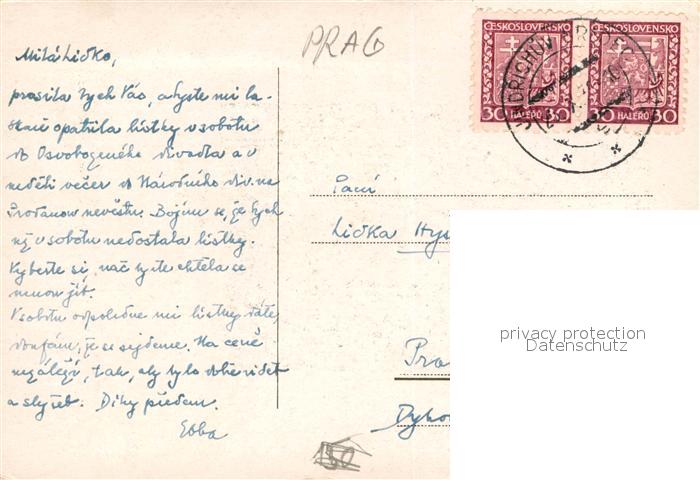 PRAG
ČESKOSLOVENSKO ČESKOSLOVENSKO
30 HALÉŘŮ 30 30 HALÉŘŮ 30
JINDŘICHŮV HRADEC
Milá Lidko,
prosila bych Vás, abyste mi la-
skavě opatřila lístky v sobotu
do Osvobozeného divadla a v
neděli večer do Národního div. na
Prodanou nevěstu. Bojím se, že bych
už v sobotu nedostala lístky.
Vyberte si, nač byste chtěla se
mnou jít.
V sobotu odpoledne mi lístky dáte,
doufám, že se sejdeme. Na ceně
nezáleží, tak, aby bylo dobře vidět
a slyšet. Díky předem.
Ebba
Paní
Lidka
150
privacy protection
Datenschutz